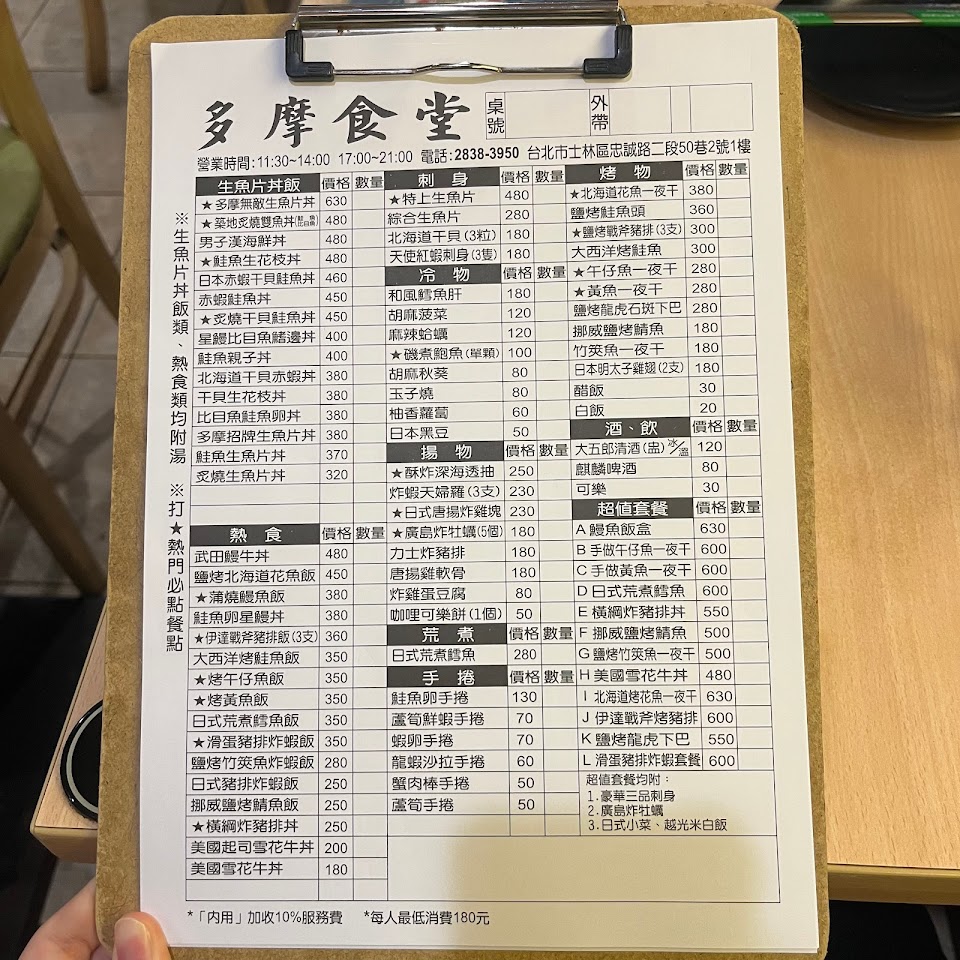 多摩食堂 桌號 外帶
營業時間:11:30~14:00 17:00~21:00 電話:2838-3950 台北市士林區忠誠路二段50巷2號1樓
※生魚片丼飯類、熱食類均附湯 ※打★熱門必點餐點
生魚片丼飯 價格 數量
★多摩無敵生魚片丼 630
★築地炙燒雙魚丼(鮭魚比目魚) 480
男子漢海鮮丼 480
★鮭魚生花枝丼 480
日本赤蝦干貝鮭魚丼 460
赤蝦鮭魚丼 450
★炙燒干貝鮭魚丼 450
星鰻比目魚鰭邊丼 400
鮭魚親子丼 400
北海道干貝赤蝦丼 380
干貝生花枝丼 380
比目魚鮭魚卵丼 380
多摩招牌生魚片丼 380
鮭魚生魚片丼 370
炙燒生魚片丼 320
熱食 價格 數量
武田鰻牛丼 480
鹽烤北海道花魚飯 450
★蒲燒鰻魚飯 380
鮭魚卵星鰻丼 380
★伊達戰斧豬排飯(3支) 360
大西洋烤鮭魚飯 350
★烤午仔魚飯 350
★烤黃魚飯 350
日式荒煮鱈魚飯 350
★滑蛋豬排炸蝦飯 350
鹽烤竹筴魚炸蝦飯 280
日式豬排炸蝦飯 250
挪威鹽烤鯖魚飯 250
★橫綱炸豬排丼 250
美國起司雪花牛丼 200
美國雪花牛丼 180
刺身 價格 數量
★特上生魚片 480
綜合生魚片 280
北海道干貝(3粒) 180
天使紅蝦刺身(3隻) 180
冷物 價格 數量
和風鱈魚肝 180
胡麻菠菜 120
麻辣蛤蠣 120
★磯煮鮑魚(單顆) 100
胡麻秋葵 80
玉子燒 80
柚香蘿蔔 60
日本黑豆 50
揚物 價格 數量
★酥炸深海透抽 250
炸蝦天婦羅(3支) 230
★日式唐揚炸雞塊 230
★廣島炸牡蠣(5個) 180
力士炸豬排 180
唐揚雞軟骨 180
炸雞蛋豆腐 80
咖哩可樂餅(1個) 50
荒煮 價格 數量
日式荒煮鱈魚 280
手捲 價格 數量
鮭魚卵手捲 130
蘆筍鮮蝦手捲 70
蝦卵手捲 70
龍蝦沙拉手捲 60
蟹肉棒手捲 50
蘆筍手捲 50
烤物 價格 數量
★北海道花魚一夜干 380
鹽烤鮭魚頭 360
★鹽烤戰斧豬排(3支) 300
大西洋烤鮭魚 300
★午仔魚一夜干 280
★黃魚一夜干 280
鹽烤龍虎石斑下巴 280
挪威鹽烤鯖魚 180
竹筴魚一夜干 180
日本明太子雞翅(2支) 180
醋飯 30
白飯 20
酒、飲 價格 數量
大五郎清酒(盅)冰/溫 120
麒麟啤酒 80
可樂 30
超值套餐 價格 數量
A 鰻魚飯盒 630
B 手做午仔魚一夜干 600
C 手做黃魚一夜干 600
D 日式荒煮鱈魚 600
E 橫綱炸豬排丼 550
F 挪威鹽烤鯖魚 500
G 鹽烤竹筴魚一夜干 500
H 美國雪花牛丼 480
I 北海道烤花魚一夜干 630
J 伊達戰斧烤豬排 600
K 鹽烤龍虎下巴 550
L 滑蛋豬排炸蝦套餐 600
超值套餐均附:
1.豪華三品刺身
2.廣島炸牡蠣
3.日式小菜、越光米白飯
*「內用」加收10%服務費 *每人最低消費180元